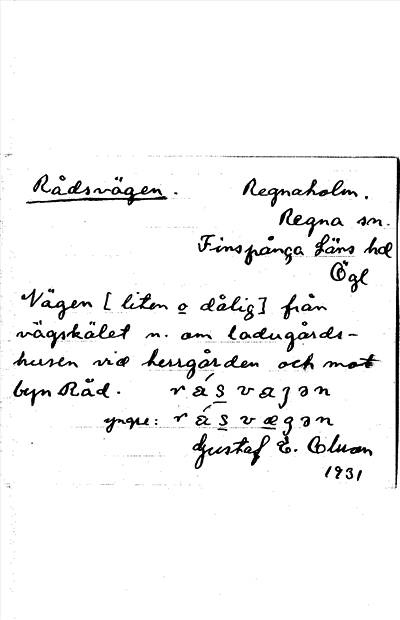 Rådsvägen. Regnaholm.
Regna sn.
Finspånga läns hd
Ögl
Vägen [liten o dålig] från
vägskälet n. om ladugårds-
husen vid herrgården och mot
byn Råd. rásvaȷən
yngre: rásvægən
Gustaf E. Olson
1931